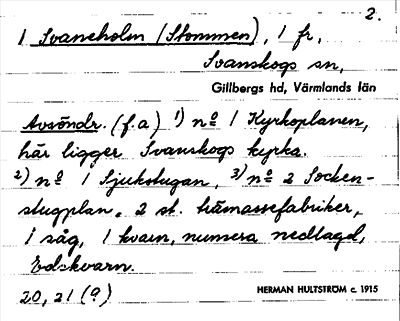 2.
1 Svaneholm (Stommen), 1 fr,
Svanskogs sn,
Gillbergs hd, Värmlands län
Avsöndr. (f.a) 1) nº 1 Kyrkoplanen,
här ligger Svanskogs kyrka.
2) nº 1 Sjukstugan, 3) nº 2 Socken-
stugplan. 2 st. trämassefabriker,
1 såg, 1 kvarn, numera nedlagd,
Edskvarn.
20, 21 (?)
HERMAN HULTSTRÖM c. 1915